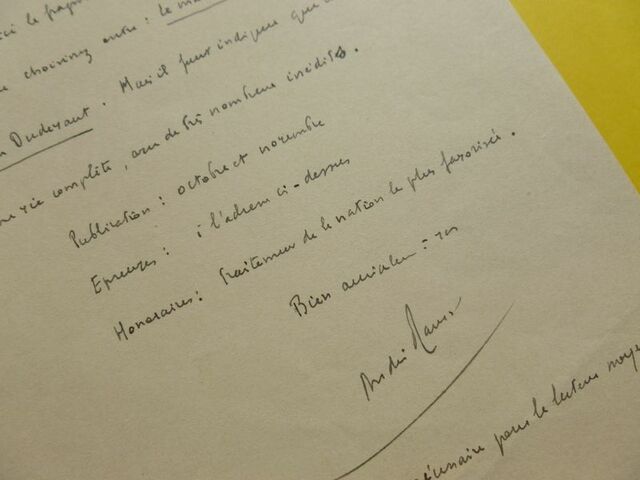 ici le
choisirez entre : le
Dudevant. Mais il faut indiquer que
vie complète, avec de très nombreux inédits.
Publication : octobre et novembre
Epreuves : à l'adresse ci-dessus
Honoraires : Traitement de la nation la plus favorisée.
Bien amicalement
André Maurois
pour le lecteur moyen